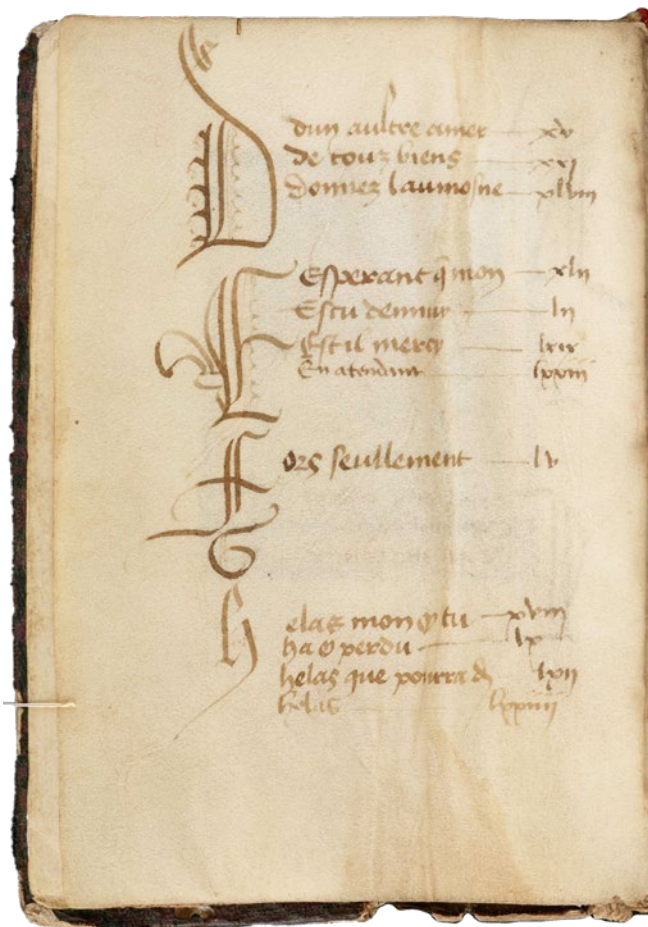 D
dun aultre amer xv
de touz biens xxi
donnez laumosne xlviii
E
Esperant q̃ mon xlii
Escu dennuy lii
Est il mercy lxix
En atendant lxxiii
F
ors seullement lv
h
elas mon tu xviii
ha perdu lx
helas que pourra lxii
helas lxxiiii